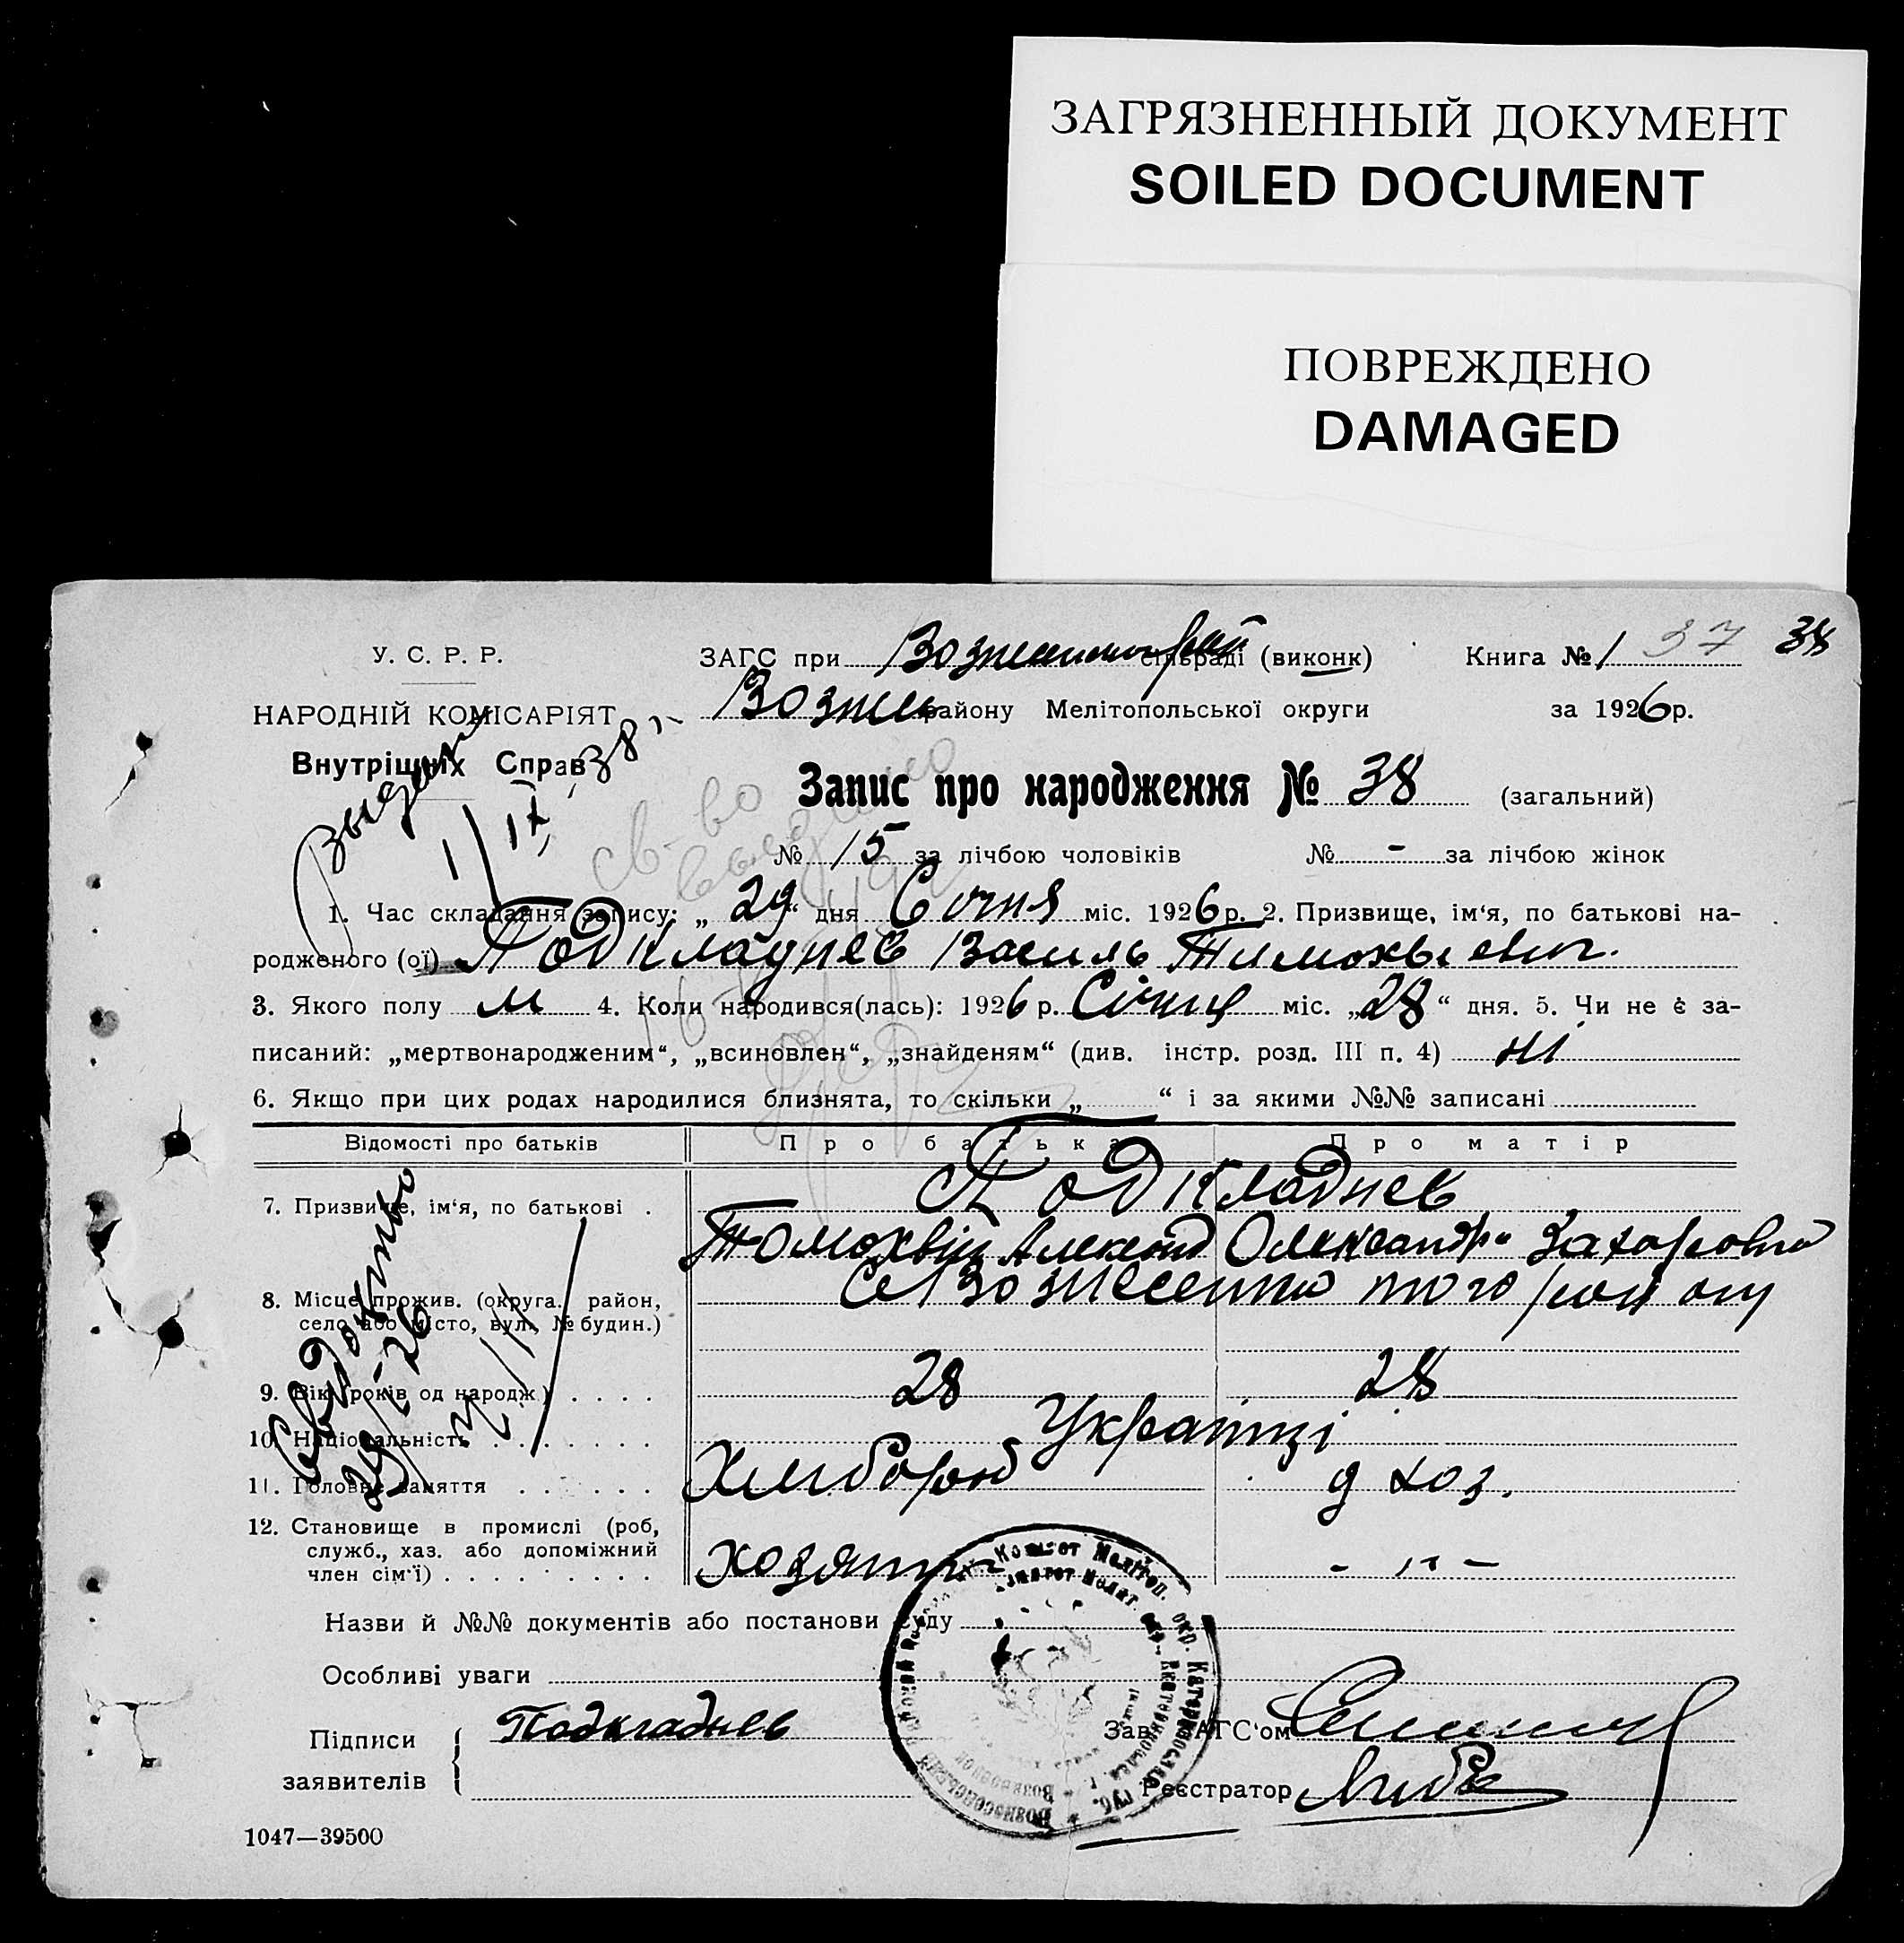 ЗАГРЯЗНЕННЫЙ ДОКУМЕНТ
SOILED DOCUMENT
ПОВРЕЖДЕНО
DAMAGED
У. С. Р. Р.
НАРОДНІЙ КОМІСАРІЯТ
Внутрішніх Справ
38
ЗАГС при сільраді (виконк) Книга № 1 37 38
Вознес району Мелітопольської округи за 1926 р.
Запис про народження № 38 (загальний)
№ 15 за лічбою чоловіків № - за лічбою жінок
1. Час складання запису: „29“ дня Січня міс. 1926 р. 2. Призвище, ім‘я, по батькові на-
родженого (ої) Подкладнев Василь Тимохвіевич.
3. Якого полу м 4. Коли народився(лась): 1926 р. Січня міс. „28“ дня. 5. Чи не є за-
писаний: „мертвонародженим“, „всиновлен“, „знайденям“ (див. інстр. розд. III п. 4) ні
6. Якщо при цих родах народилися близнята, то скільки „ “ і за якими №№ записані
Відомості про батьків Про батька Про матір
Подкладнев
7. Призвище, ім‘я, по батькові .
Олександра Захаровна
8. Місце прожив. (округа, район,
село або місто, вул., № будин.)
с Вознесенка того району
9. Вік (років од народж.) . . . . 28 28
10. Національність . . . . . . . Українці
11. Головне заняття . . . . . . Хлибороб д хоз.
12. Становище в промислі (роб,
служб., хаз. або допоміжний
член сім‘ї) . . . . . . . . . хозяин - „ -
Свидоктво
29/I-26
Назви й №№ документів або постанови суду
Особливі уваги
Підписи
заявителів
Подкладнев
Зав. ЗАГС‘ом
Реєстратор
1047—39500